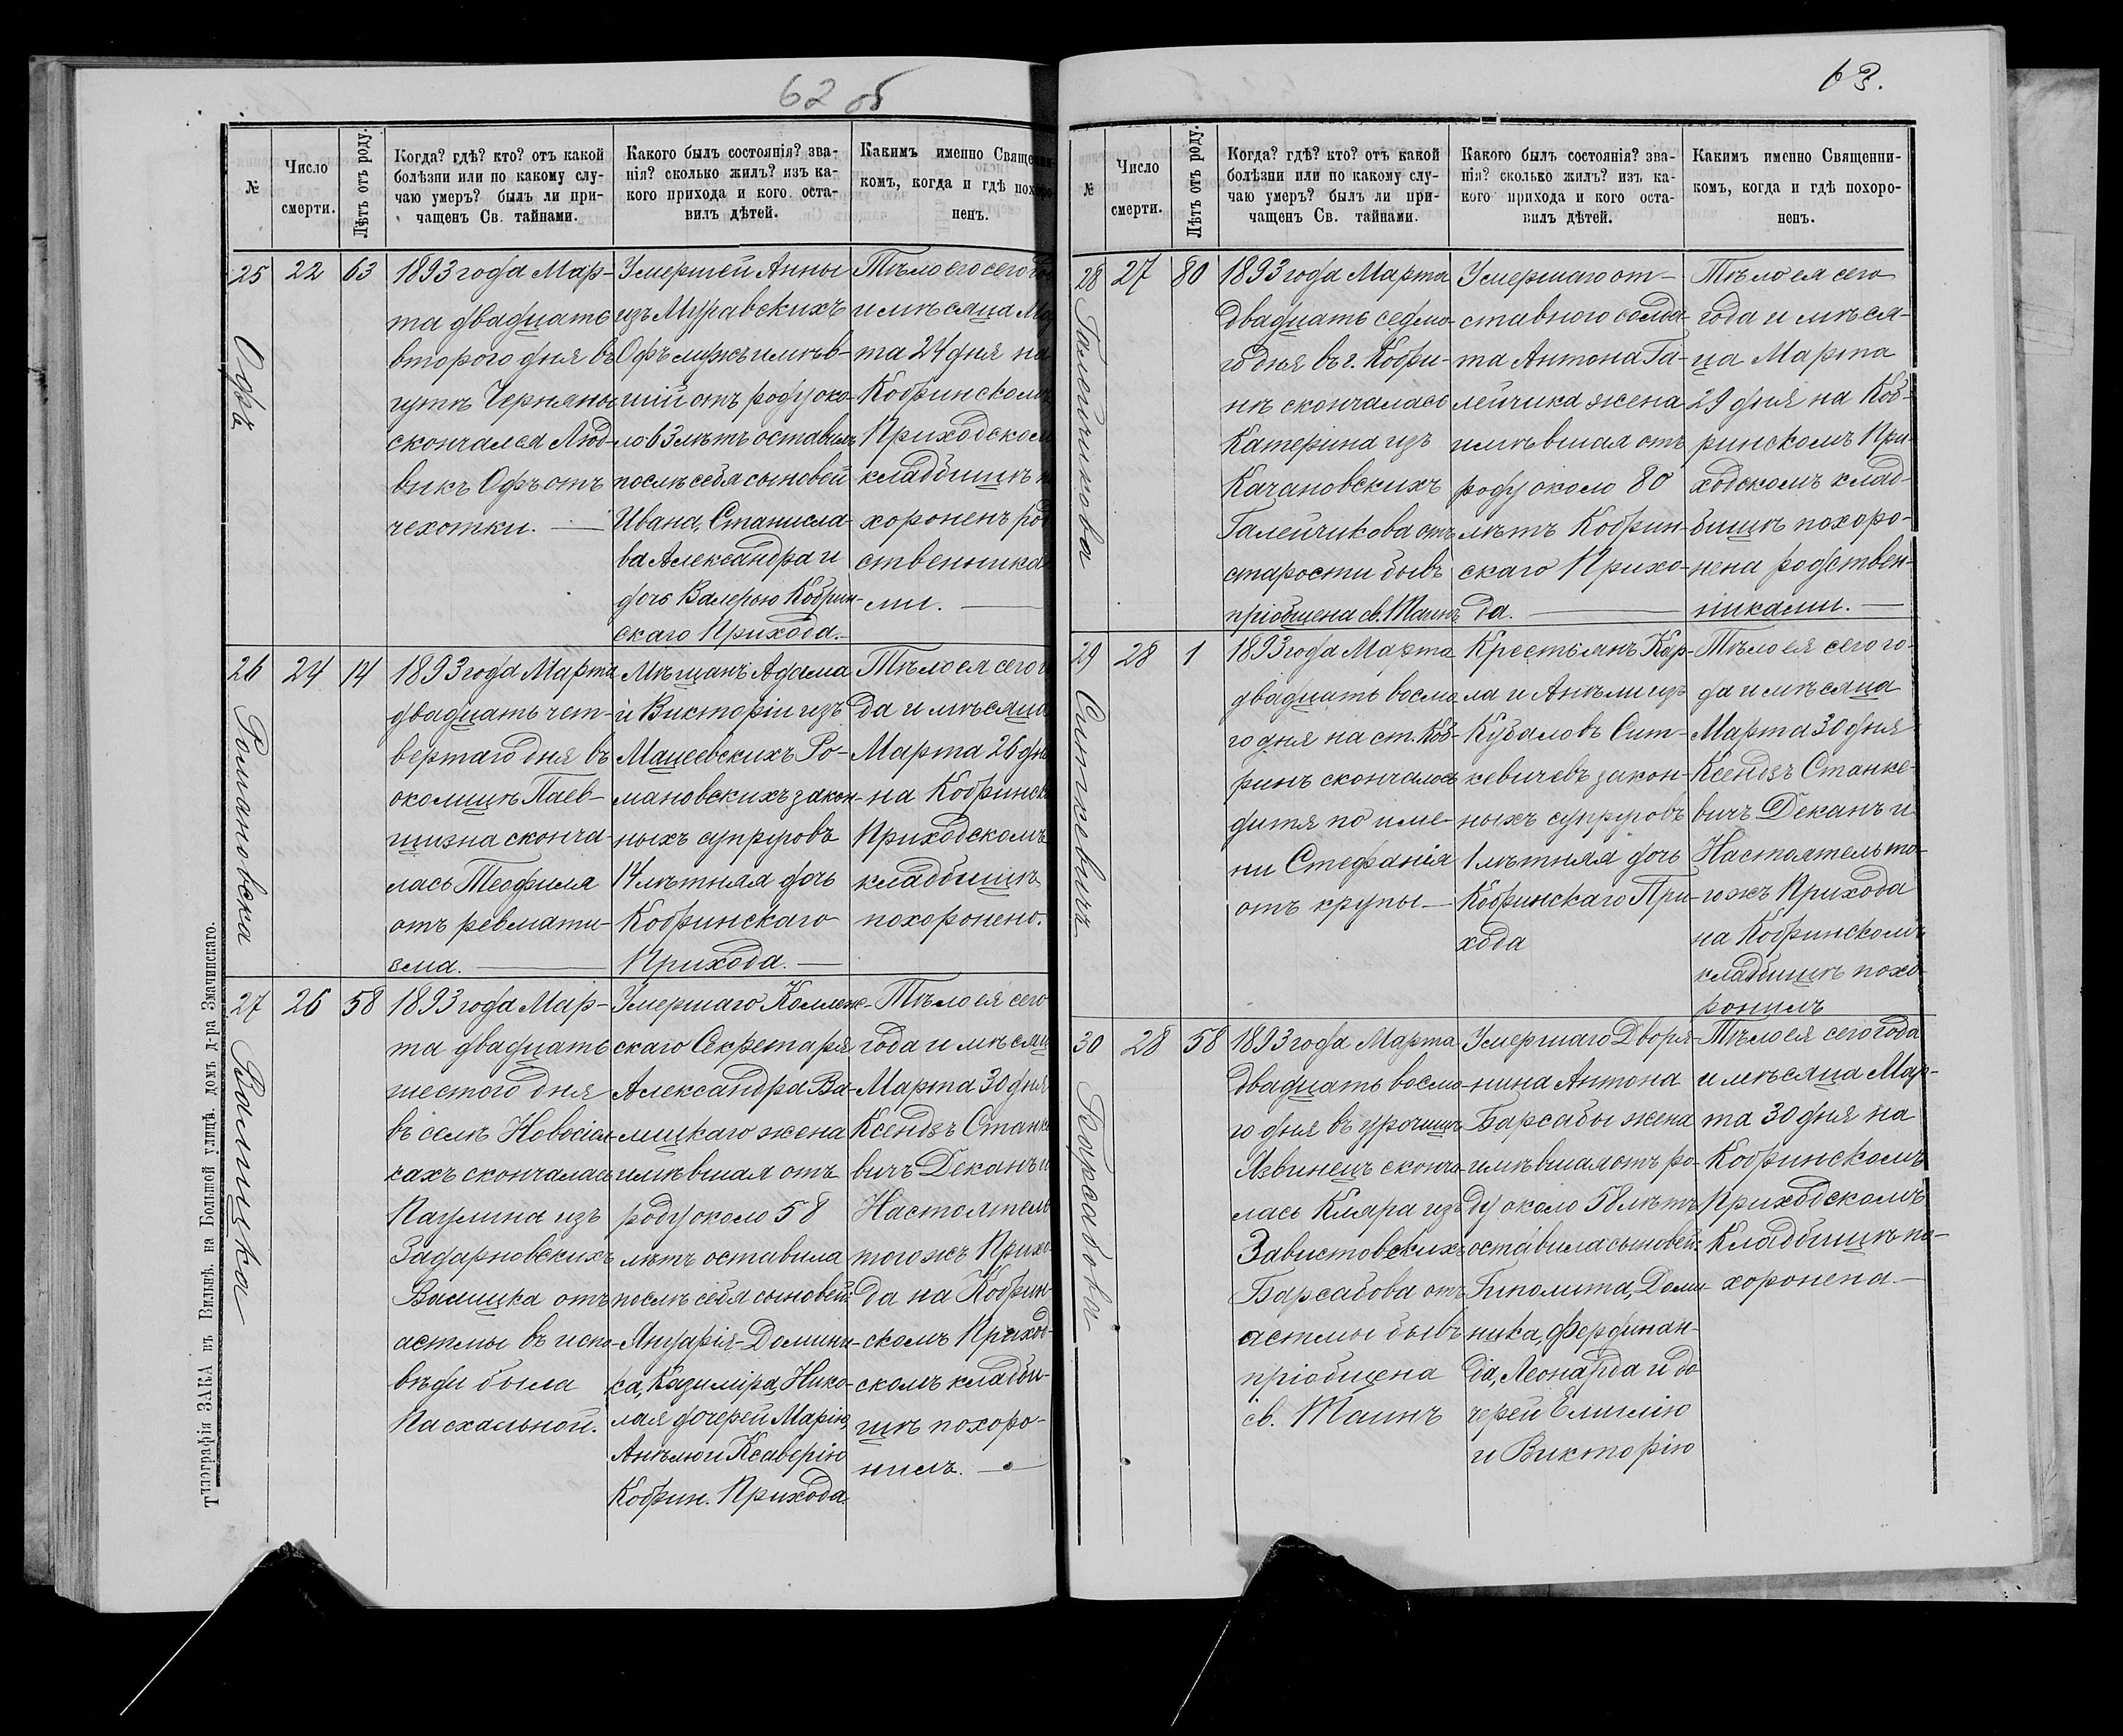 62 об
№
Число
смерти.
Лѣтъ отъ роду.
Когда? гдѣ? кто? отъ какой
болѣзни или по какому слу-
чаю умеръ? былъ ли при-
чащенъ Св. тайнами.
Какого былъ состоянія? зва-
нія? сколько жилъ? изъ ка-
кого прихода и кого оста-
вилъ дѣтей.
Каким именно Священни-
комъ, когда и гдѣ похоро-
ненъ.
25
Офъ
22
63
1893 года Мар-
та двадцать
второго дня въ
скончался Люд-
викъ Офъ отъ
чехотки.
Умершей Анны
изъ Муравскихъ
Офъ мужъ имѣв-
шій отъ роду око-
ло 63 лѣтъ оставилъ
послѣ себя сыновей
Ивана, Станисла-
ва Александра и
дочь Валерью Кобрин-
скаго Прихода.
Тѣло его сего
и мѣсяца
та 24 дня на
Кобринском
Приходском
кладбищѣ
хороненъ род
ственника
ми.
26
Романовска
24
14
1893 года Марта
двадцать чет-
вертаго дня въ
околицѣ Паев-
щизна сконча-
лась Теофиля
отъ ревмати-
зма.
Мѣщанъ Адама
и Викторіи изъ
Мацеевскихъ Ро-
мановскихъ закон-
ныхъ супруговъ
14 лѣтняя дочь
Кобринскаго
Прихода.
Тѣло ея сего
да и мѣсяца
Марта 26 дня
на Кобринск
Приходскомъ
кладбищѣ
похоронено.
27
Валицка
26
58
1893 года Мар-
та двадцать
шестого дня
въ селѣ Новосіол-
кахъ скончалась
Паулина изъ
Задарновскихъ
Валицка отъ
астмы въ испо-
вѣди была
Пасхальной.
Умершаго Коллеж-
скаго Секретаря
Александра Ва-
лицкаго жена
имѣвшая отъ
роду около 58
лѣтъ оставила
послѣ себя сыновей:
Януарія-Домини-
ка, Казиміра, Нико-
лая дочерей Марію,
Анѣлю и Ксаверію
Кобрин. Прихода.
Тѣло ея сего
года и мѣсяц
Марта 30 дня
Ксендзъ Станке
вичъ Деканъ и
Настоятель
того жъ Прихо-
да на Кобрин-
скомъ Приход-
скомъ кладби-
щѣ похоро-
нилъ.
Типографія ЗАКА въ Вильнѣ, на Большой улицѣ, домъ д-ра Змачинскаго.
63.
№
Число
смерти.
Лѣтъ отъ роду.
Когда? гдѣ? кто? отъ какой
болѣзни или по какому слу-
чаю умеръ? былъ ли при-
чащенъ Св. тайнами.
Какого былъ состоянія? зва-
нія? сколько жилъ? изъ ка-
кого прихода и кого оста-
вилъ дѣтей.
Какимъ именно Священни-
комъ, когда и гдѣ похоро-
ненъ.
28
Галейчикова
27
80
1893 года Марта
двадцать седмо-
го дня въ г. Кобри-
нѣ скончалась
Катерина изъ
Качановскихъ
Галейчикова отъ
старости бывъ
пріобщена св. Таинъ
Умершаго от-
ставного солда-
та Антона Га-
лейчика жена
имѣвшая отъ
роду около 80
лѣтъ Кобрин-
скаго Прихо-
да.
Тѣло ея сего
года и мѣся-
ца Марта
29 дня на Коб-
ринскомъ При-
ходскомъ клад-
бищѣ похоро-
нена родствен-
никами.
29
Ситкевичъ
28
1
1893 года Марта
двадцать восмо
го дня на ст. Коб-
ринъ скончалось
дитя по име-
ни Стефанія
отъ крупы
Крестьянъ Кар-
ла и Анѣли изъ
Кубаловъ Сит-
кевичевъ закон-
ныхъ супруговъ
1 лѣтняя дочь
Кобринскаго При-
хода
Тѣло ея сего го-
да и мѣсяца
Марта 30 дня
Ксендзъ Станке-
вичъ Деканъ и
Настоятель то-
го жъ Прихода
на Кобринскомъ
кладбищѣ похо-
ронилъ
30
Барсабова
28
58
1893 года Марта
двадцать восмо-
го дня въ урочищѣ
Язвинецъ сконча-
лась Кляра изъ
Завистовскихъ
Барсабова отъ
астмы бывъ
пріобщена
св. Таинъ
Умершаго Дворя-
нина Антона
Барсабы жена
имѣвшая отъ ро-
ду около 58 лѣтъ
оставила сыновей:
Гиполита, Доми-
ника, Фердинан-
да, Леонарда и до
черей Емилію
и Викторію
Тѣло ея сего года
и мѣсяца Мар-
та 30 дня на
Кобринскомъ
Приходскомъ
Кладбищѣ по-
хоронена.